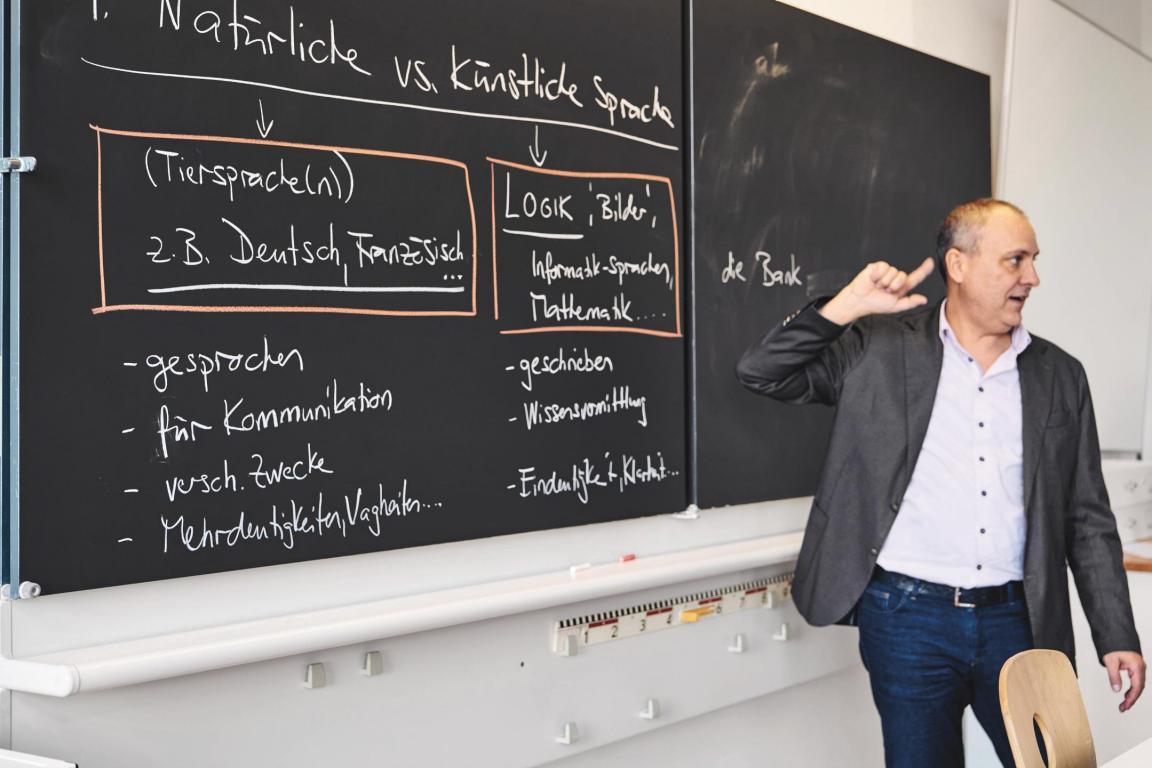 1. Natürliche vs. Künstliche Sprache
(Tiersprache(n))
z.B. Deutsch, Französisch
...
- gesprochen
- für Kommunikation
- versch. Zwecke
- Mehrdeutigkeiten, Vagheiten...
LOGIK, 'Bilder',
Informatik-Sprachen,
Mathematik....
- geschrieben
- Wissensvermittlung
- Eindeutigkeit, Klarheit...
die Bank
1 2 3 4 6 7 8